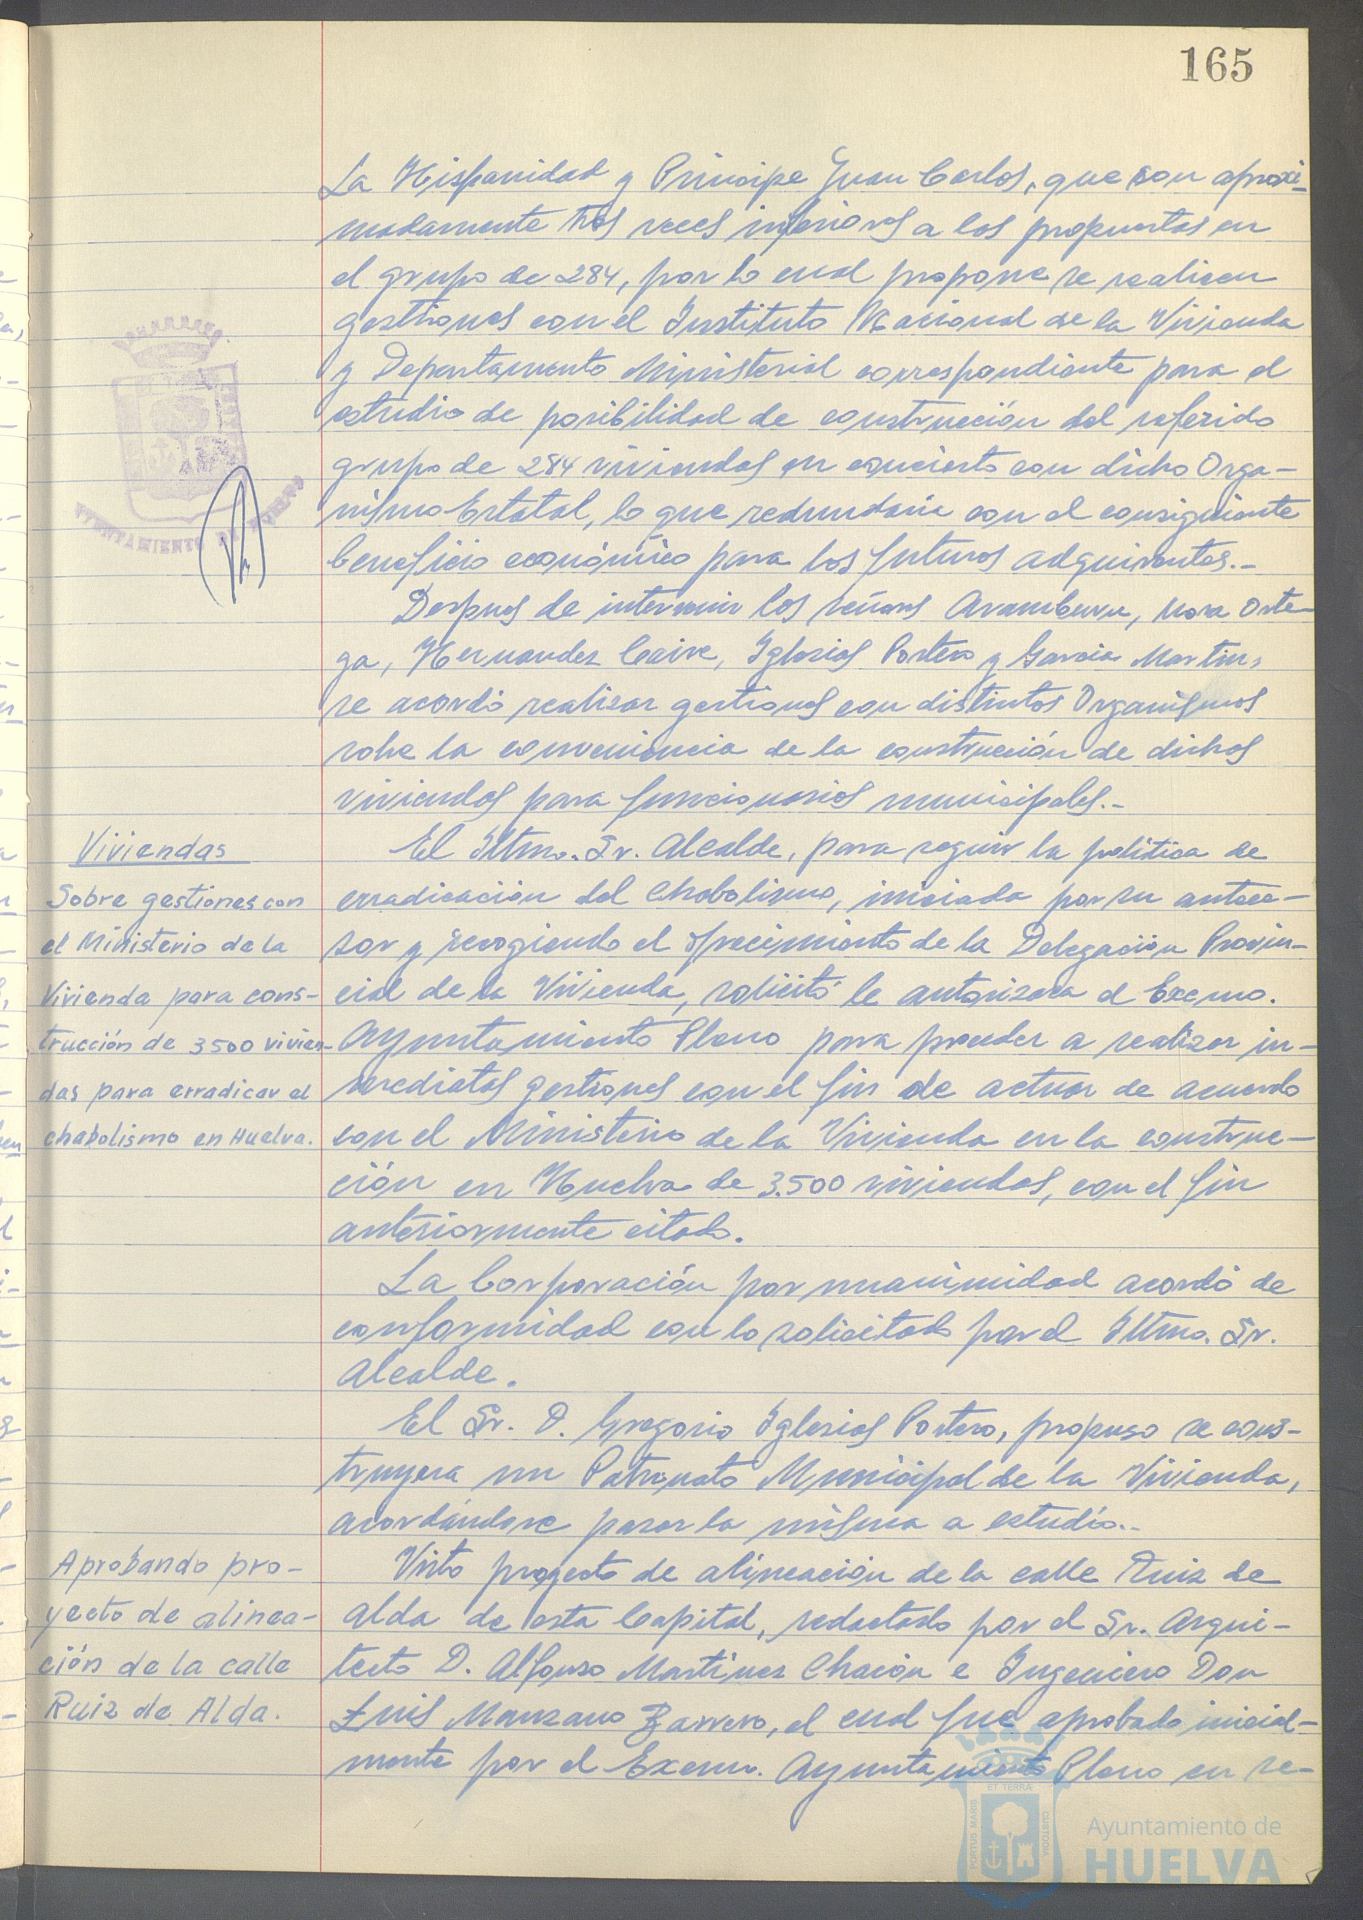 165
La Hispanidad y Principe Juan Carlos, que son aproxi-
madamente tres veces inferiores a los propuestos en
el grupo de 284, por lo cual propone se realicen
gestiones con el Instituto Nacional de la Vivienda
y Departamento Ministerial correspondiente para el
estudio de posibilidad de construcción del referido
grupo de 284 viviendas en concierto con dicho Orga-
nismo Estatal, lo que redundaria con el consiguiente
beneficio económico para los futuros adquirentes.-
Despues de intervenir los señores Aramburu, Mora Orte-
ga, Hernandez Caire, Iglesias Portero y Garcia Martin,
se acordó realizar gestiones con distintos Organismos
sobre la conveniencia de la construcción de dichas
viviendas para funcionarios municipales.-
Viviendas
Sobre gestiones con
el Ministerio de la
Vivienda para cons-
trucción de 3500 vivien-
das para erradicar el
chabolismo en Huelva.
El Iltmo. Sr. Alcalde, para seguir la politica de
erradicación del chabolismo, iniciada por su antece-
sor y recogiendo el ofrecimiento de la Delegación Provin-
cial de la Vivienda, solicitó le autorizara el Excmo.
Ayuntamiento Pleno para proceder a realizar in-
mediatas gestiones con el fin de actuar de acuerdo
con el Ministerio de la Vivienda en la construc-
ción en Huelva de 3.500 viviendas, con el fin
anteriormente citado.
La Corporación por unanimidad acordó de
conformidad con lo solicitado por el Iltmo. Sr.
Alcalde.
El Sr. D. Gregorio Iglesias Portero, propuso se cons-
truyera un Patronato Municipal de la Vivienda,
acordándose pasar la misma a estudio.-
Aprobando pro-
yecto de alinea-
ción de la calle
Ruiz de Alda.
Visto proyecto de alineación de la calle Ruiz de
Alda de esta Capital, redactado por el Sr. Arqui-
tecto D. Alfonso Martinez Chacón e Ingeniero Don
Luis Manzano Barrero, el cual fue aprobado inicial-
mente por el Excmo. Ayuntamiento Pleno en se-
AYUNTAMIENTO DE HUELVA
PORTUS MARIS
ET TERRA
CUSTODIA
Ayuntamiento de
HUELVA